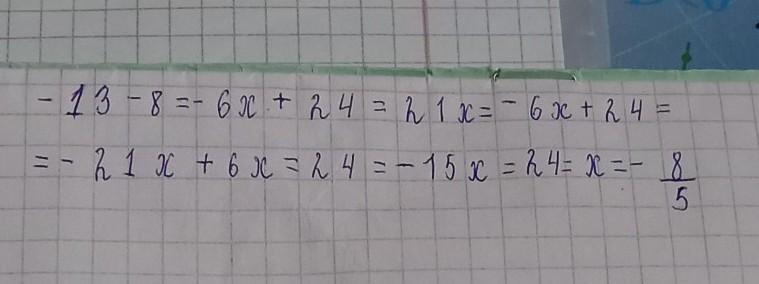 -13-8=-6x+24=21x=-6x+24=
=-21x+6x=24=-15x=24=x=-8/5